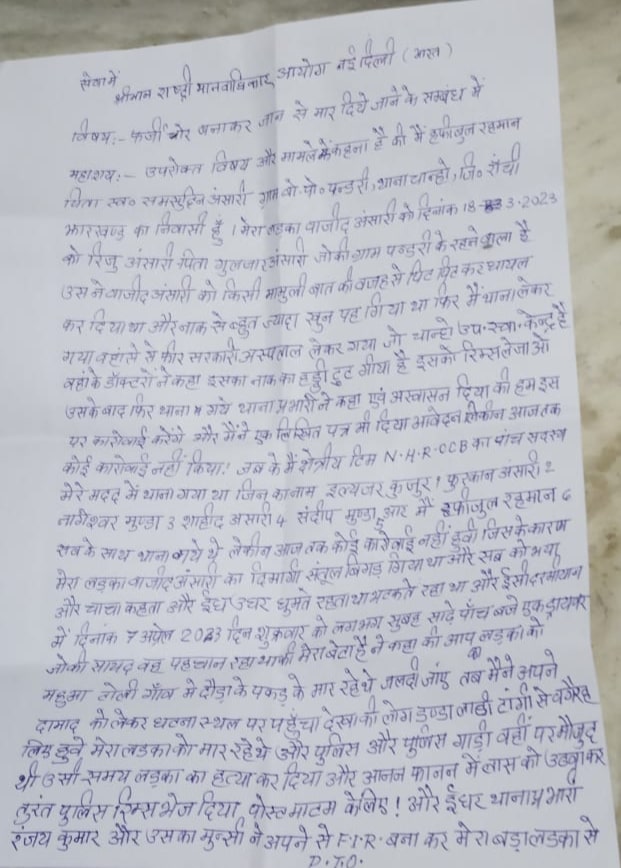 सेवा में
श्रीमान राष्ट्री मानवाधिकार आयोग नई दिल्ली (भारत)
विषय:- फर्जी चोर बनाकर जान से मार दिये जाने के सम्बंध में
महाशय:- उपरोक्त विषय और मामले में कहना है की मैं हफीजुल रहमान
पिता स्व० समसुद्दिन अंसारी ग्राम वो. पो० पन्डरी, थाना चान्हो, जि० राँची
झारखण्ड का निवासी हूँ। मेरा लड़का वाजीद अंसारी को दिनांक 18-3-2023
को रिजु अंसारी पिता गुलजार अंसारी जोकी ग्राम पन्डरी के रहने वाला है
उसने वाजीद अंसारी को किसी मामुली बात की वजह से पिट पिट कर घायल
कर दिया था और नाक से बहुत ज्यादा खुन बह गिया था फिर मैं थाना लेकर
गया वहां से फीर सरकारी अस्पताल लेकर गया जो चान्हो उप. स्वा. केन्द्र है
वहां के डॉक्टरों ने कहा इसका नाक का हड्डी टुट गीया है इसको रिम्स लेजाओ
उसके बाद फिर थाना गये थाना प्रभारी ने कहा एवं अस्वासन दिया की हम इस
पर कारोवाई करेंगे और मैंने एक लिखित पत्र भी दिया आवेदन लेकीन आजतक
कोई कारोवाई नहीं किया! जब के मैं क्षेत्रीय टिम N.H.R.OCB का पांच सदस्य
मेरे मदद में थाना गया था जिन का नाम इल्यजर कुजुर 1 फुरकान अंसारी 2
नागेश्वर मुण्डा 3 शाहीद अंसारी 4 संदीप मुण्डा 5 आर मैं हफीजुल रहमान 6
सब के साथ थाना गये थे लेकीन आजतक कोई कारोवाई नहीं हुवी जिसके कारण
मेरा लड़का वाजीद अंसारी का दिमागी संतुल बिगड़ गिया था और सब को भया
और चाचा कहता और ईधर उधर घुमते रहता था भटकते रहा था और ईसी दरमीयान
में दिनांक 7 अप्रेल 2023 दिन शुक्रवार को लगभग सुबह साढे पाँच बजे एक ड्रायवर
जोकी सायद वह पहचान रहा था की मेरा बेटा है ने कहा की आप लड़का को
महुआ टोली गाँव में दौड़ा के पकड़ के मार रहे थे जलदी जाएं तब मैंने अपने
दामाद को लेकर घटना स्थल पर पहुंचा देखा की लोग डण्डा लाठी टांगी से वगैरह
लिए हुवे मेरा लड़का को मार रहे थे और पुलिस और पुलिस गाड़ी वहीं पर मौजुद
थी उसी समय लड़का का हत्या कर दिया और आनन फानन में लास को उठवा कर
तुरंत पुलिस रिम्स भेज दिया पोस्टमाटम के लिए! और ईधर थाना प्रभारी
रंजय कुमार और उसका मुन्सी ने अपने से F.I.R. बना कर मेरा बड़ा लड़का से
P.T.O.